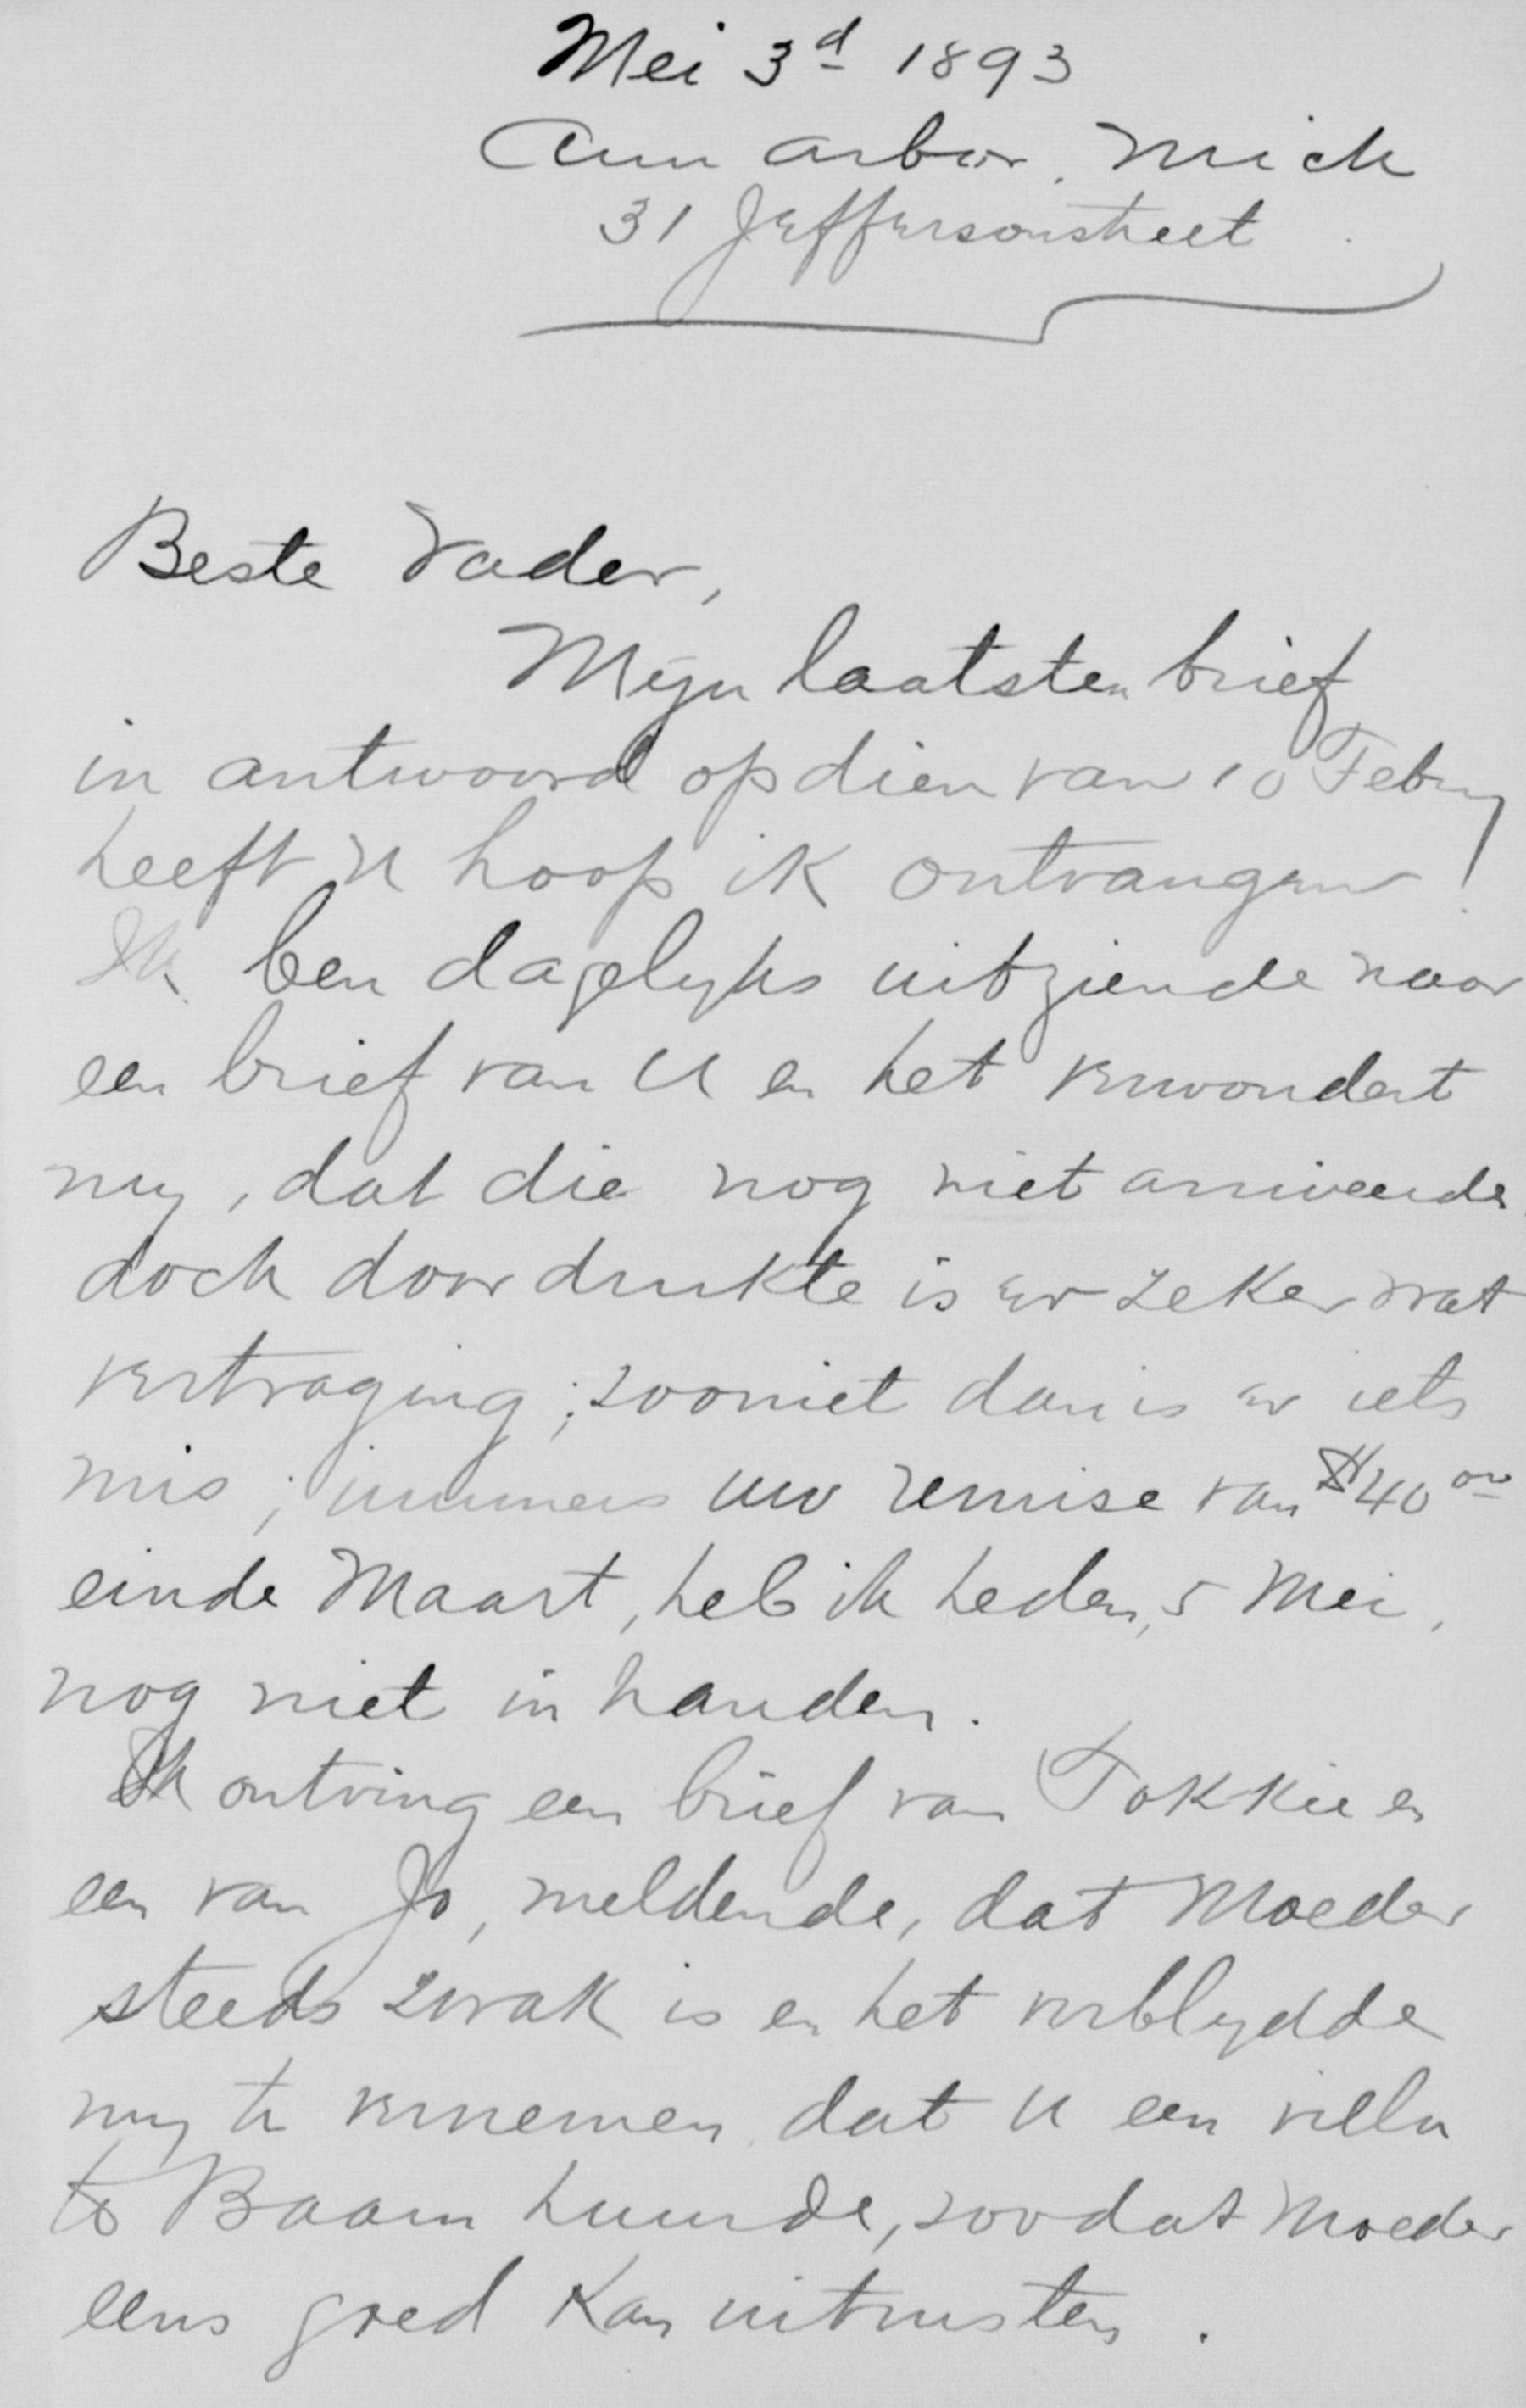 Mei 3d 1893
Ann Arbor. Mich
31 Jeffersonstreet
Beste Vader,
Mijn laatsten brief
in antwoord op dien van 10 Febry
heeft U hoop ik ontvangen!
Ik ben dagelyks uitziende naar
een brief van U en het verwondert
my, dat die nog niet arriveerde
doch door drukte is er zeker wat
vertraging; zooniet dan is er iets
mis; immers uw remise van $40 00
einde Maart, heb ik heden, 5 Mei,
nog niet in handen.
Ik ontving een brief van Tokkie en
een van Jo, meldende, dat Moeder
steeds zwak is en het verblydde
my te vernemen dat U een villa
te Baarn huurde, zoodat Moeder
eens goed kan uitrusten.